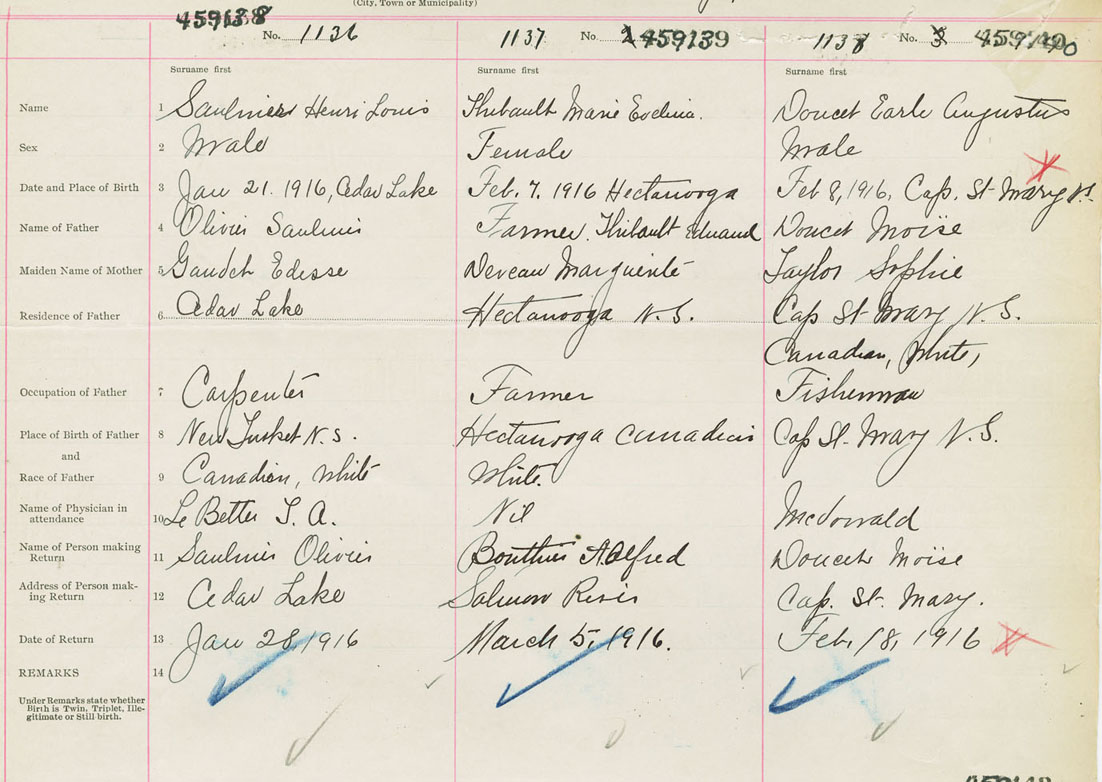 (City, Town or Municipality)
459138
No. 1136
1137 No. 2 459139
1138 No. 3 459140
Surname first Surname first Surname first
Name 1 Saulnier Henri Louis Thibault Marie Evelina. Doucet Earle Augustus
Sex 2 Male Female Male
Date and Place of Birth 3 Jan 21. 1916, Cedar Lake Feb. 7. 1916 Hectanooga Feb 8, 1916, Cap. St Mary N.S.
Name of Father 4 Olivier Saulnier Farmer. Thibault Eduard Doucet Moïse
Maiden Name of Mother 5 Gaudet Edesse Deveau Marguerite Taylor Sophie
Residence of Father 6 Cedar Lake Hectanooga N.S. Cap St Mary N.S.
Canadian, White,
Occupation of Father 7 Carpenter Farmer Fisherman
Place of Birth of Father 8 New Tusket N.S. Hectanooga Canadian Cap St. Mary N.S.
and
Race of Father 9 Canadian, White White.
Name of Physician in
attendance 10 Le Better Nil McDonald
Name of Person making
Return 11 Saulnier Olivier Bouthier Alfred Doucet Moïse
Address of Person mak-
ing Return 12 Cedar Lake Salmon River Cap. St. Mary.
Date of Return 13 Jan 28, 1916 March 5, 1916. Feb. 18, 1916
REMARKS 14
Under Remarks state whether
Birth is Twin, Triplet, Ille-
gitimate or Still-birth.